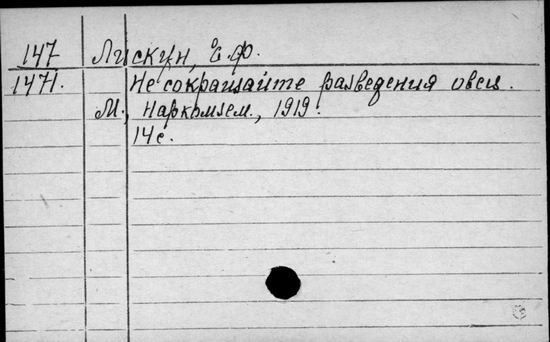 147 Лискун, Е.Ф.
1471. Не сокращайте разведения овец.
М., Наркомзем., 1919.
14с.